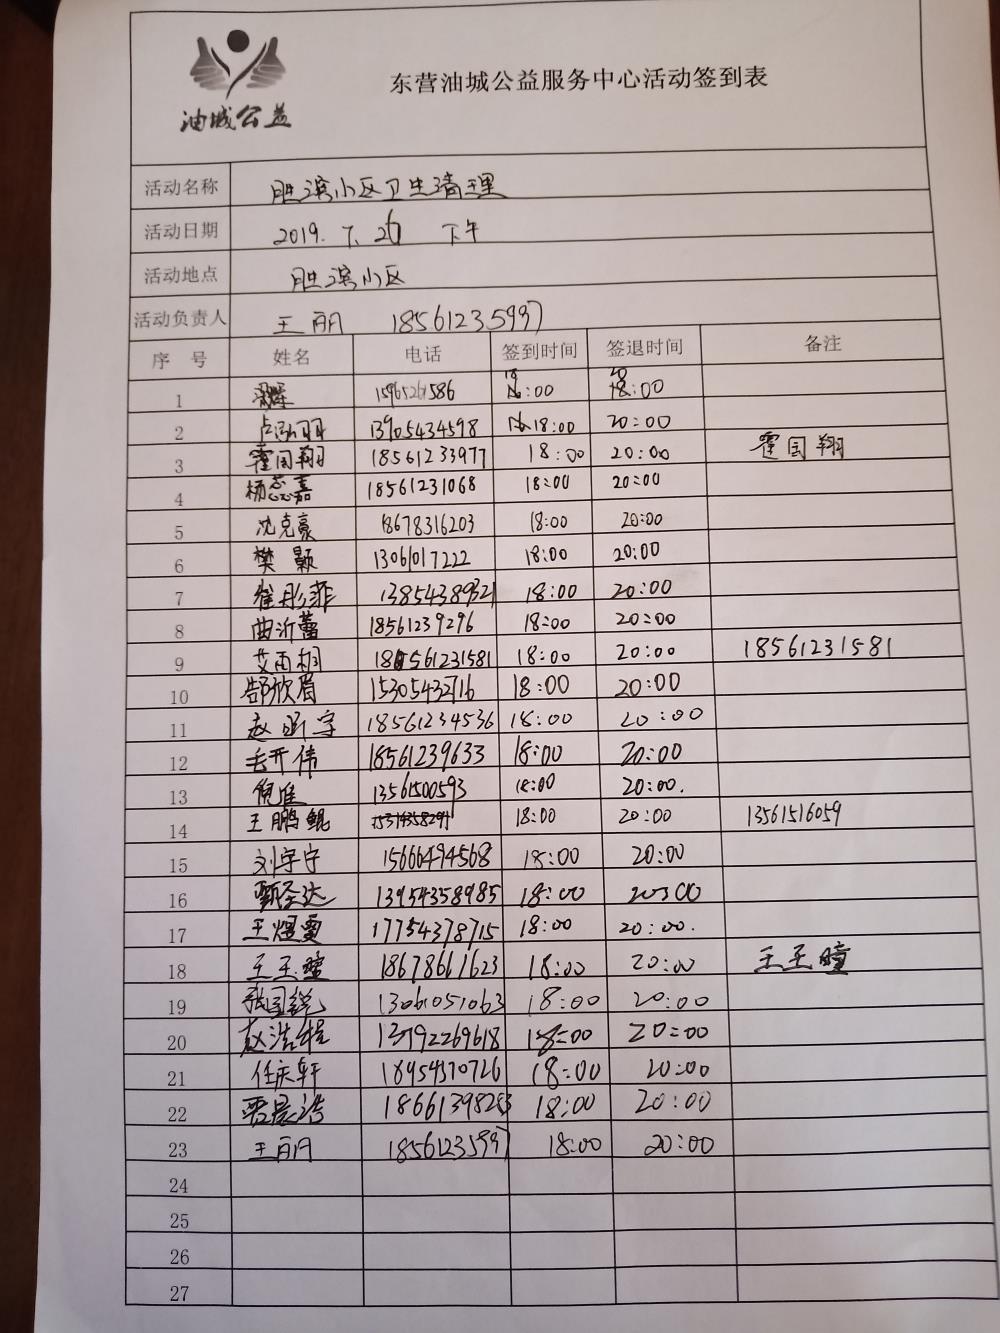 油城公益
东营油城公益服务中心活动签到表
活动名称 胜滨小区卫生清理
活动日期 2019. 7. 26 下午
活动地点 胜滨小区
活动负责人 王丽 18561235997
序 号 姓名 电话 签到时间 签退时间 备注
1 15965261586 :00 18:00
2 卢泓羽 13905434598 18:00 20:00
3 霍国翔 18561233977 18:00 20:00 霍国翔
4 杨蕊嘉 18561231068 18:00 20:00
5 沈克豪 18678316203 18:00 20:00
6 樊颢 13061017222 18:00 20:00
7 崔彤菲 13854389321 18:00 20:00
8 曲沂蕾 18561239296 18:00 20:00
9 艾雨桐 18561231581 18:00 20:00 18561231581
10 郜欣眉 15305432716 18:00 20:00
11 赵 宇 18561234536 18:00 20:00
12 毛开伟 18561239633 18:00 20:00
13 倪维 13561500593 18:00 20:00.
14 王鹏鲲 18:00 20:00 13561516059
15 刘字宁 15666494568 18:00 20:00
16 甄圣达 13954358985 18:00 20:00
17 王煜雯 17754378715 18:00 20:00.
18 王玉瞳 18678661623 18:00 20:00 王玉瞳
19 张国锐 13061051063 18:00 20:00
20 赵浩程 13792269618 18:00 20:00
21 任庆轩 18954370726 18:00 20:00
22 贾晨浩 18661398283 18:00 20:00
23 王丽 18561235997 18:00 20:00
24
25
26
27